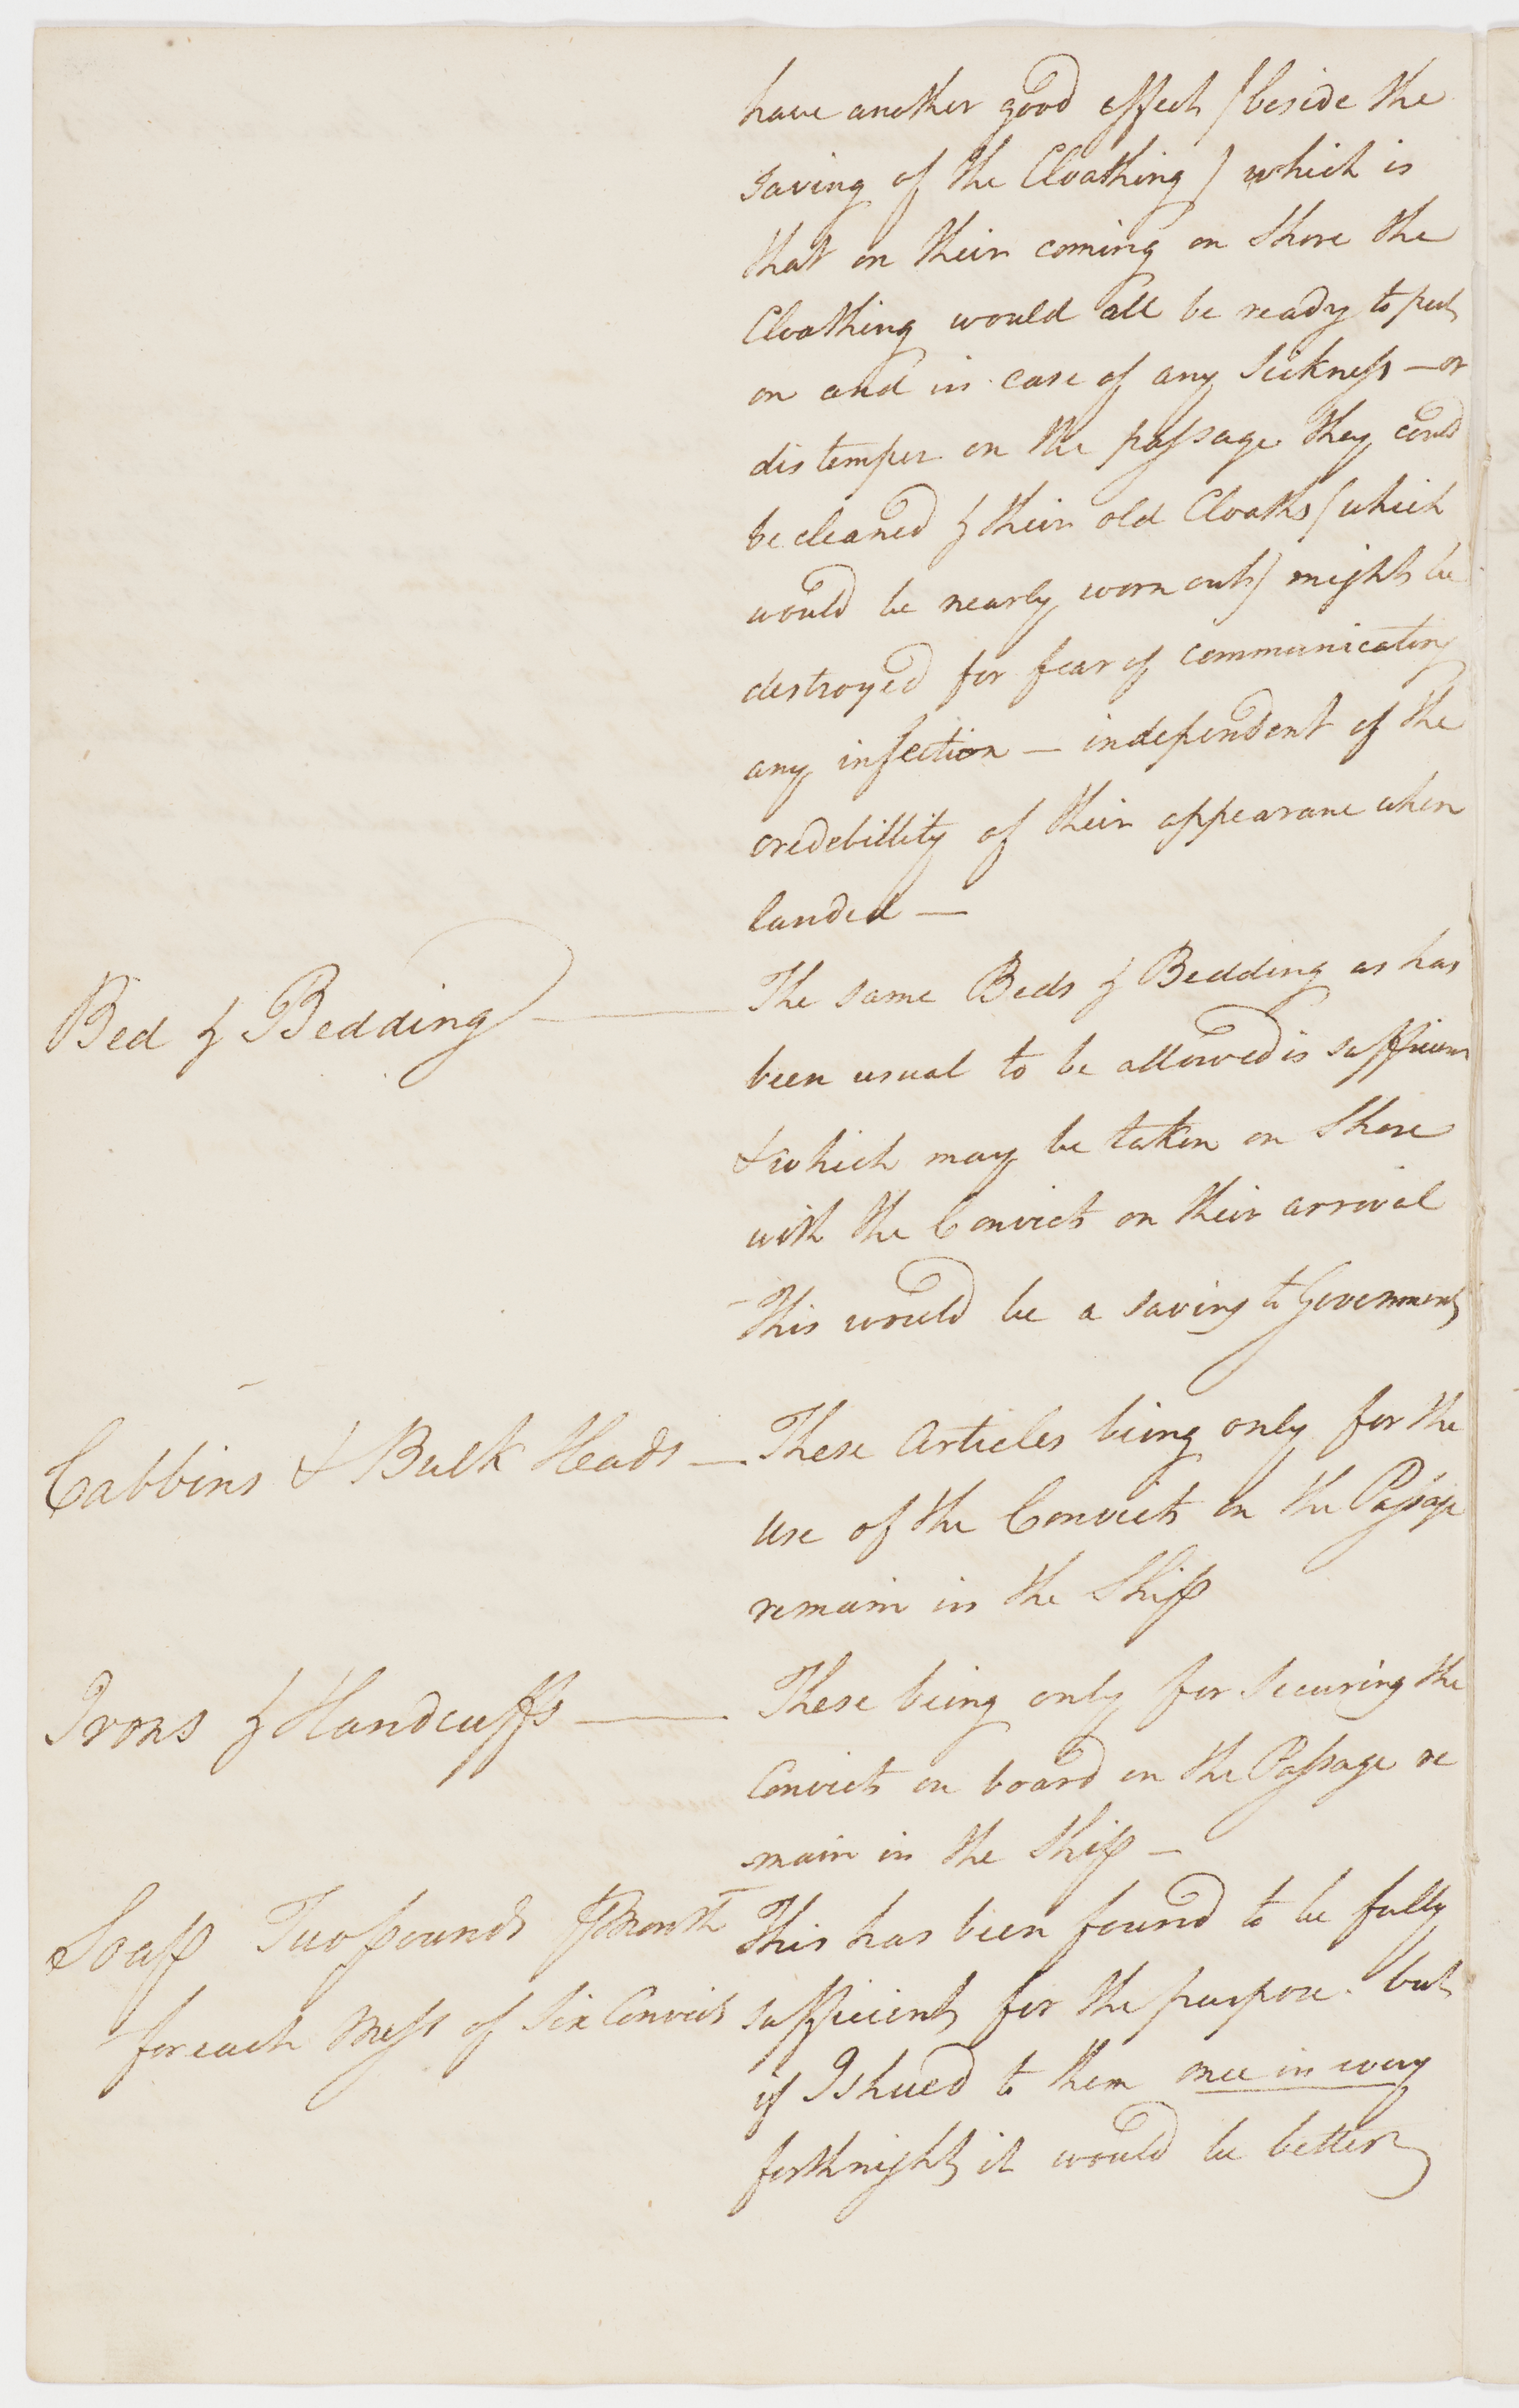 have another good effect /beside the
saving of the Cloathing / which is
that on their coming on Shore the
Cloathing would all be ready to put
on and in case of any Sickness — or
distemper on the passage they could
be cleaned & their old Cloaths /which
would be nearly worn out/ might be
destroyed for fear of communicating
any infection — independent of the
credebillity of their appearance when
landed —
Bed & Bedding —— The same Beds & Bedding as has
been usual to be allowed is sufficient
& which may be taken on Shore
with the Convicts on their arrival
This would be a saving to Government
Cabbins & Bulk Heads — These Articles being only for the
use of the Convicts on the Passage
remain in the Ship
Irons & Handcuffs —— These being only for Securing the
Convicts on board on the Passage re
main in the Ship —
Soap Two pounds ⅌ Month This has been found to be fully
for each Mess of Six Convicts sufficient for the purpose. but
if Ishued to them once in every
forthnight it would be better